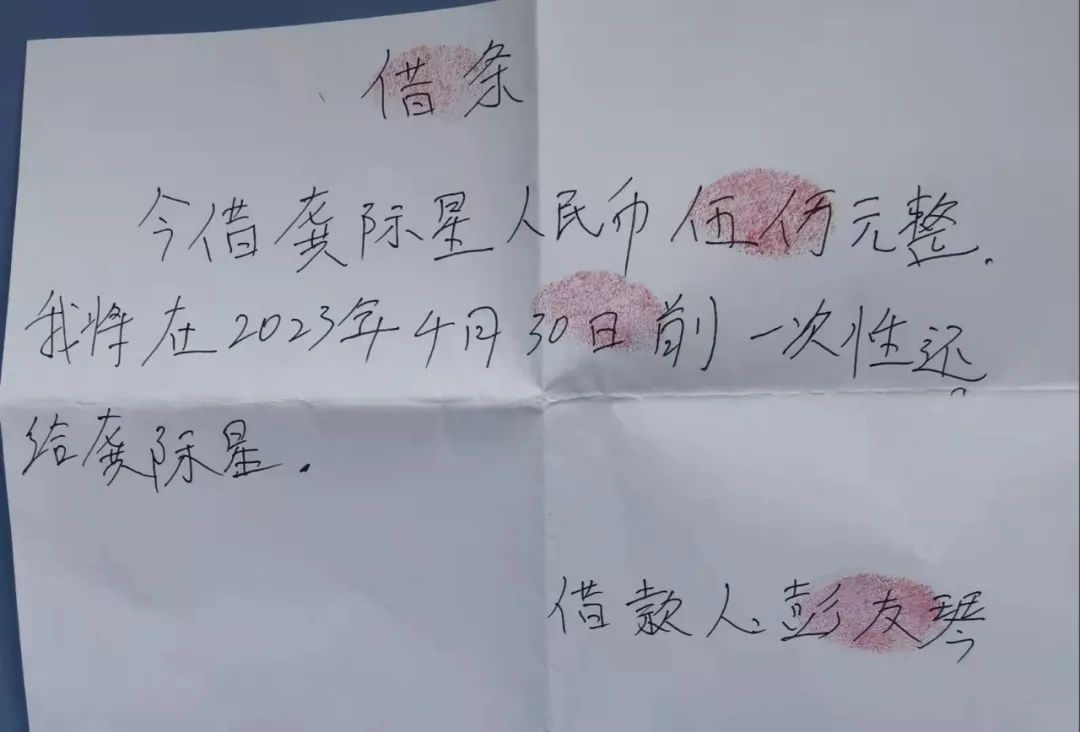 借条
今借龚际星人民币伍仟元整.
我将在2023年4月30日前一次性还
给龚际星.
借款人:彭友琴